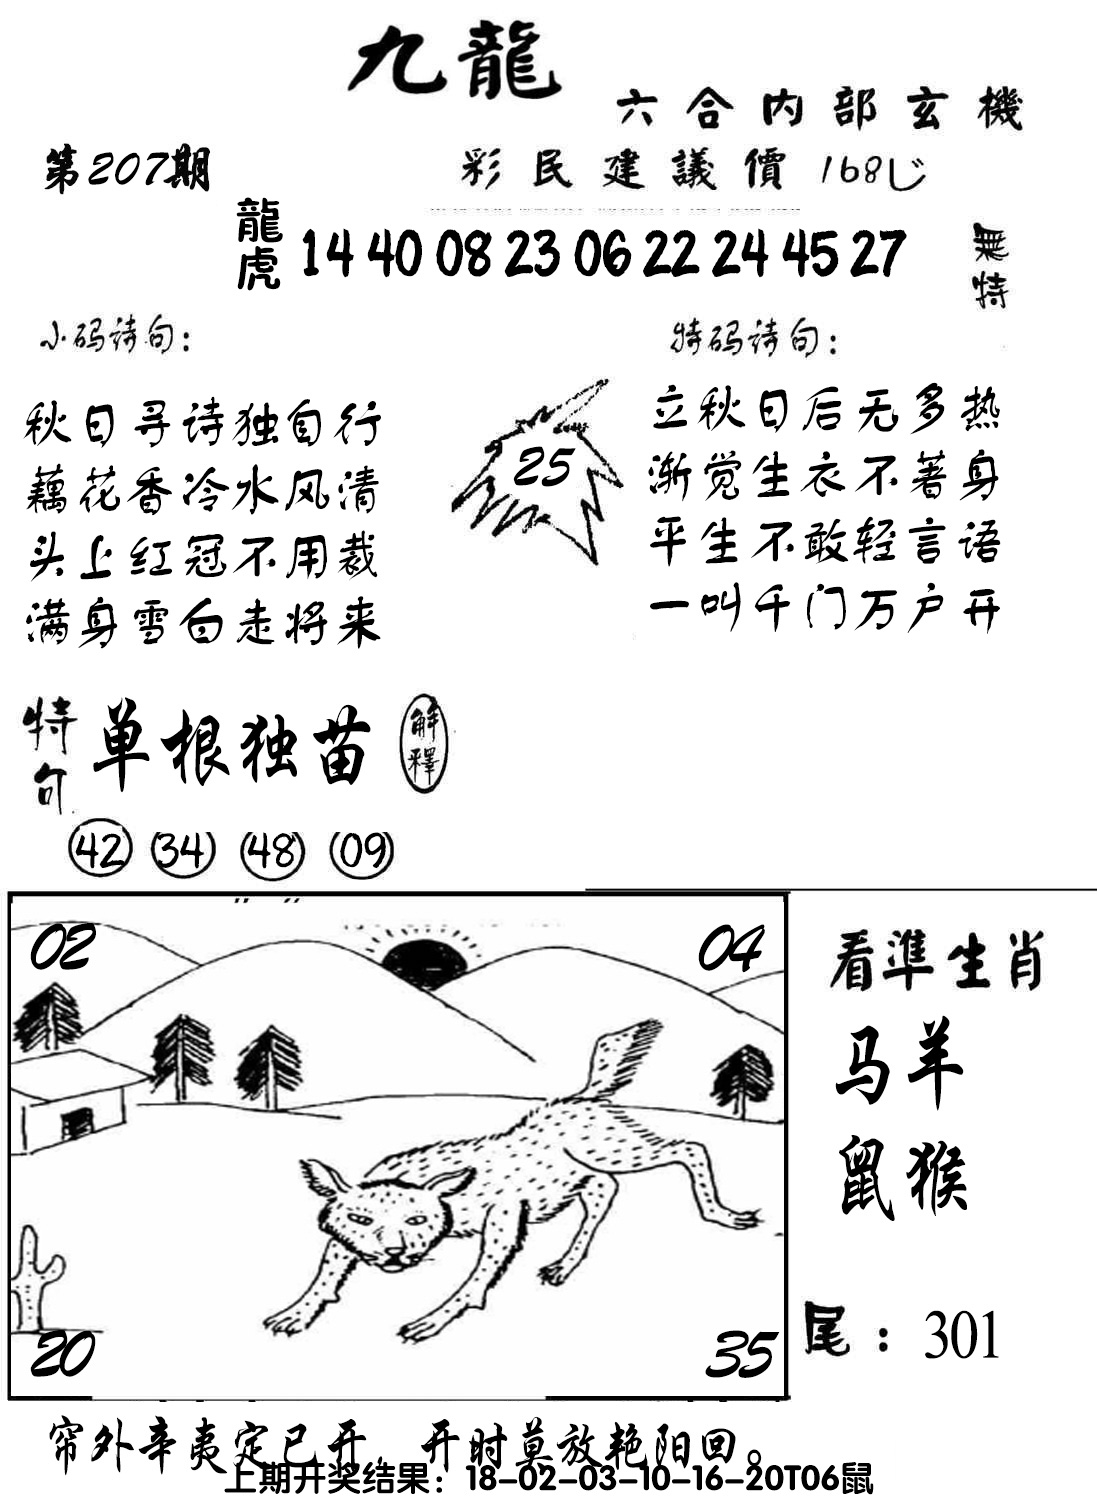 九龍
六合内部玄機
第207期
彩民建議價 168
龍虎
14 40 08 23 06 22 24 45 27
無特
小码诗句：
特码诗句：
秋日寻诗独自行
藕花香冷水风清
头上红冠不用裁
满身雪白走将来
25
立秋日后无多热
渐觉生衣不著身
平生不敢轻言语
一叫千门万户开
特句
单根独苗
解釋
42 34 48 09
02
04
20
35
看準生肖
马羊
鼠猴
尾：301
帘外辛夷定已开，开时莫放艳阳回。
上期开奖结果：18-02-03-10-16-20T06鼠